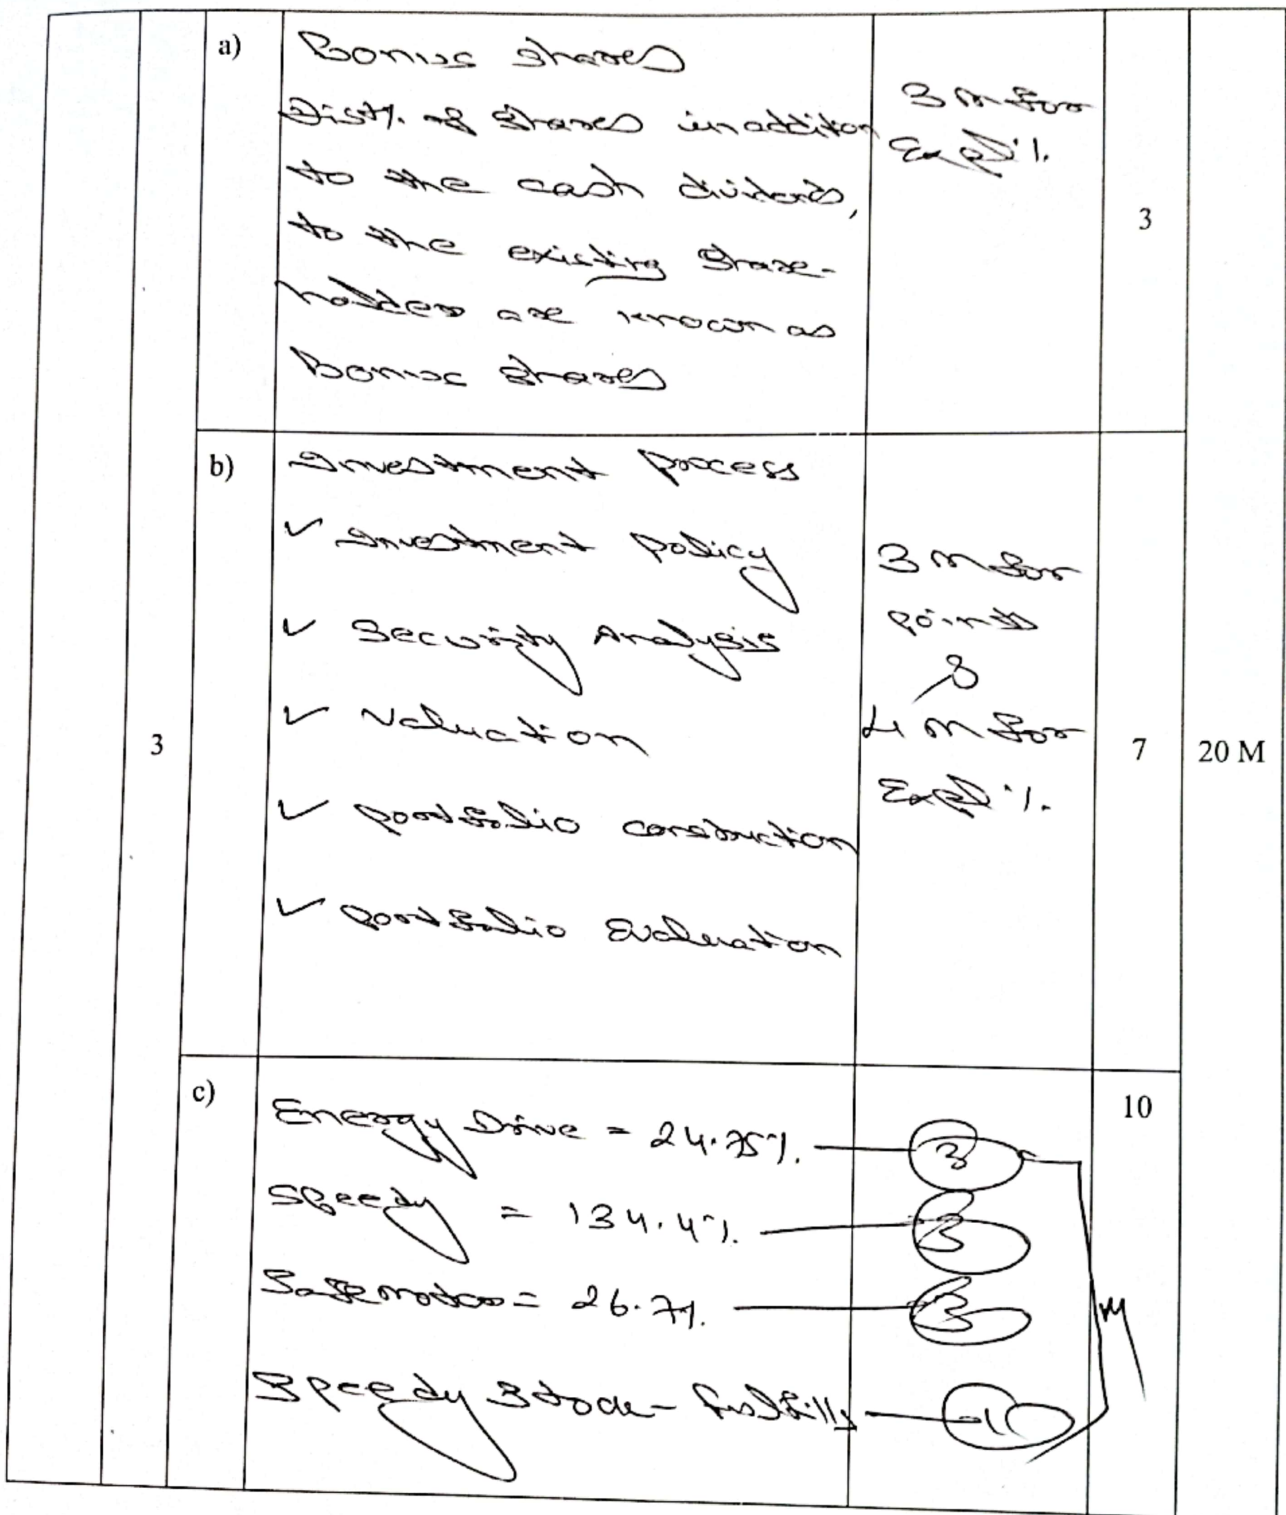 a)
Bonus shares
Dist/. of shares in additon
to the cash dividends,
to the existing share-
holders are known as
Bonus shares
3 m for
Expl'/.
3
b)
Investment process
✓ Investment policy
✓ Security Analysis
✓ Valuation
✓ portfolio construction
✓ portfolio Evaluation
3 m for
points
&
4 m for
Expl'/.
3
7
20 M
c)
Energy Drive = 24.75%. 3
Speedy = 134.4%. 3
Safe motos = 26.7%. 3
Speedy Stock - fulfills 1
10